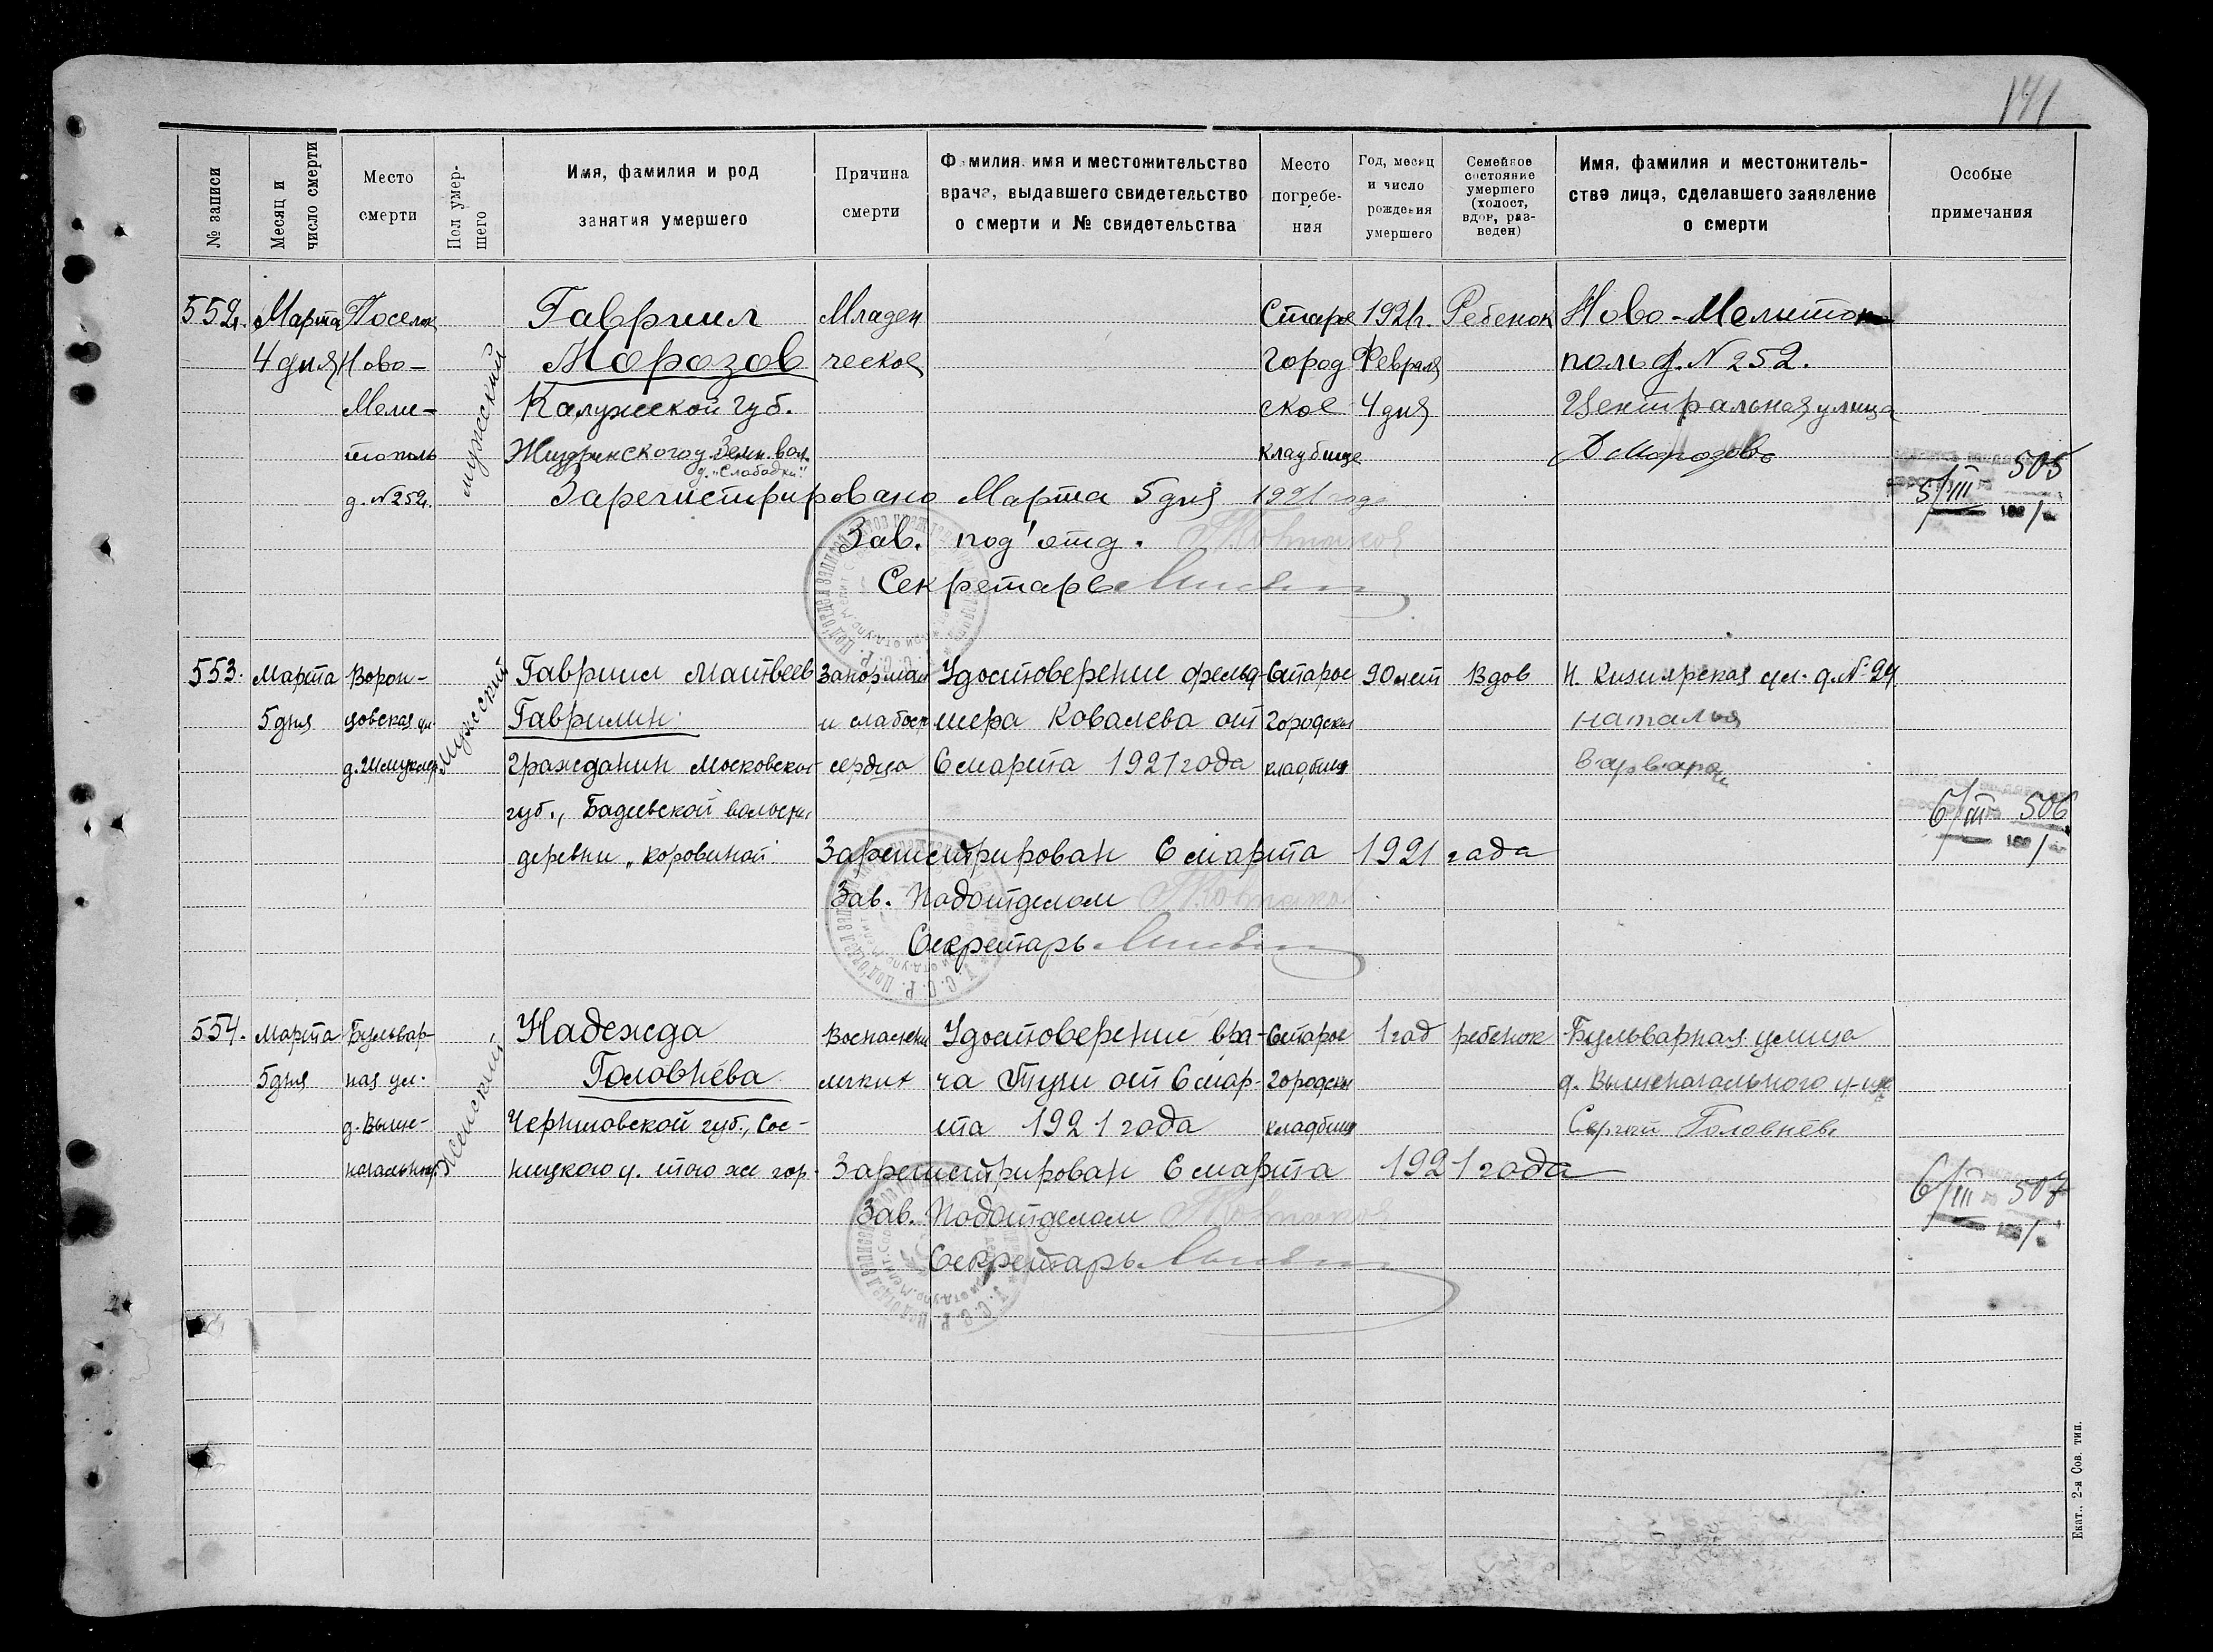 141
№ записи
Месяц и число смерти
Место смерти
Пол умер-шего
Имя, фамилия и род занятия умершего
Причина смерти
Фамилия, имя и местожительство врача, выдавшего свидетельство о смерти и № свидетельства
Место погребе-ния
Год, месяц и число рождения умершего
Семейное состояние умершего (холост, вдов, раз-веден)
Имя, фамилия и местожитель-ство лица, сделавшего заявление о смерти
Особые примечания
552.
Марта
4 дня
Поселок
Ново-
Мели-
тополь
д. №252.
мужеский
Гавриил
Морозов
Калужской губ.
Жиздринского у. Земн. вол.
д. „Слободки"
Младен
ческое
Старое
город
ское
кладбище
1921 г.
Февраля
4 дня
Ребенок
Ново-Мелитон
поль д. №252.
Центральная улица
Д Морозов
Зарегистрировано Марта 5 дня 1921 года
Зав. под'отд.
Секретарь
5/III 505
553.
Марта
5 дня
Ворон-
цовская ул.
мужеский
Гавриил Матвеев
Гаврилин
гражданин Московской
губ., Бадеевской волости,
деревни „Коровиной"
и слабост
сердца
Удостоверение фельд-
шера Ковалева от
6 марта 1921 года
Старое
городск
кладбище
90 лет
Вдов
Н. Кизиярская ул. д. № 24
Наталья
6/III 506
Зарегистрирован 6 марта 1921 года
Зав. Подотделом
Секретарь
554.
Марта
5 дня
Бульвар-
ная ул.
д. Выше-
начальног
женский
Надежда
Головнёва
Черниговской губ., Сос-
ницкого у. того же гор.
Воспалени
легких
Удостоверение вра-
ча Туги от 6 мар-
та 1921 года
Старое
городск
кладбище
1 год
ребенок
Бульварная улица
д. Вышеначального
Сергей Головнёв
Зарегистрирован 6 марта 1921 года
Зав. Подотделом
Секретарь
6/III 507
Екат., 2-я Сов. тип.